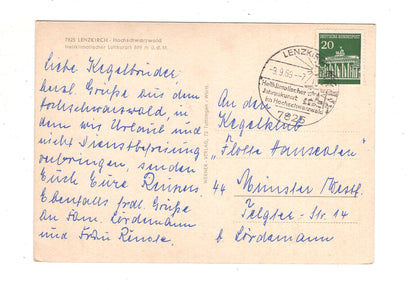 7825 LENZKIRCH - Hochschwarzwald
Heilklimatischer Luftkurort 810 m ü. d. M.
Liebe Kegelbrüder,
herzl. Grüße aus dem
Hochschwarzwald, in
dem wir Urlaub und
nicht Dienstbefreiung
verbringen, senden
Euch Eure
Ebenfalls frdl. Grüße
an Fam. Lördemann
und Frau Renate.
DEUTSCHE BUNDESPOST
20
LENZKIRCH
-9.9.69-7
Heilklimatischer
Jahreskurort
im Hochschwarzwald
7825
An den
Kegelklub
„Flotte Hanseaten"
44 Münster/Westf.
Telgter-Str. 14
b. Lördemann